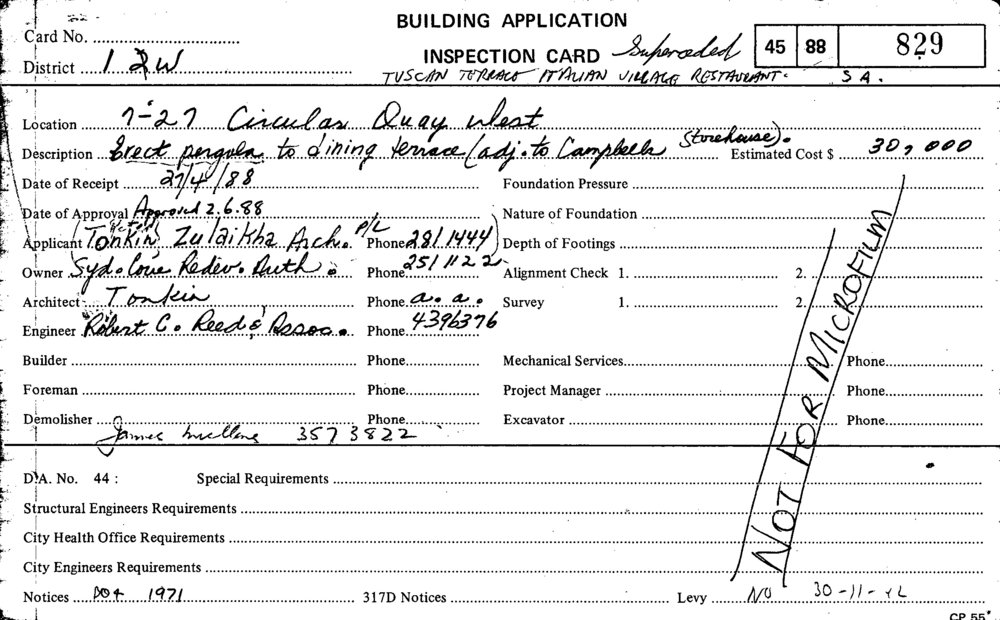 BUILDING APPLICATION
Card No.
INSPECTION CARD Superceded 45 88 829
District 1 2W
TUSCAN TERRACE ITALIAN VILLAGE RESTAURANT. S A.
Location 7-27 Circular Quay West
Description Erect pergola to dining terrace (adj. to Campbells Storehouse). Estimated Cost $ 30,000
Date of Receipt 27/4/88 Foundation Pressure
Date of Approval Approved 2.6.88 Nature of Foundation
Applicant Tonkin Zulaikha Arch. P/L Phone 281 1444 Depth of Footings
Owner Syd. Cove Redev. Auth. Phone 251 1122 Alignment Check 1. 2.
Architect Tonkin Phone a. a. Survey 1. 2.
Engineer Robert C. Reed & Assoc. Phone 4396376
Builder Phone Mechanical Services Phone
Foreman Phone Project Manager Phone
Demolisher Phone Excavator Phone
James 357 3822
NOT FOR MICROFILM
D.A. No. 44 : Special Requirements
Structural Engineers Requirements
City Health Office Requirements
City Engineers Requirements
Notices 1971 317D Notices Levy NO 30-11-
CP 55